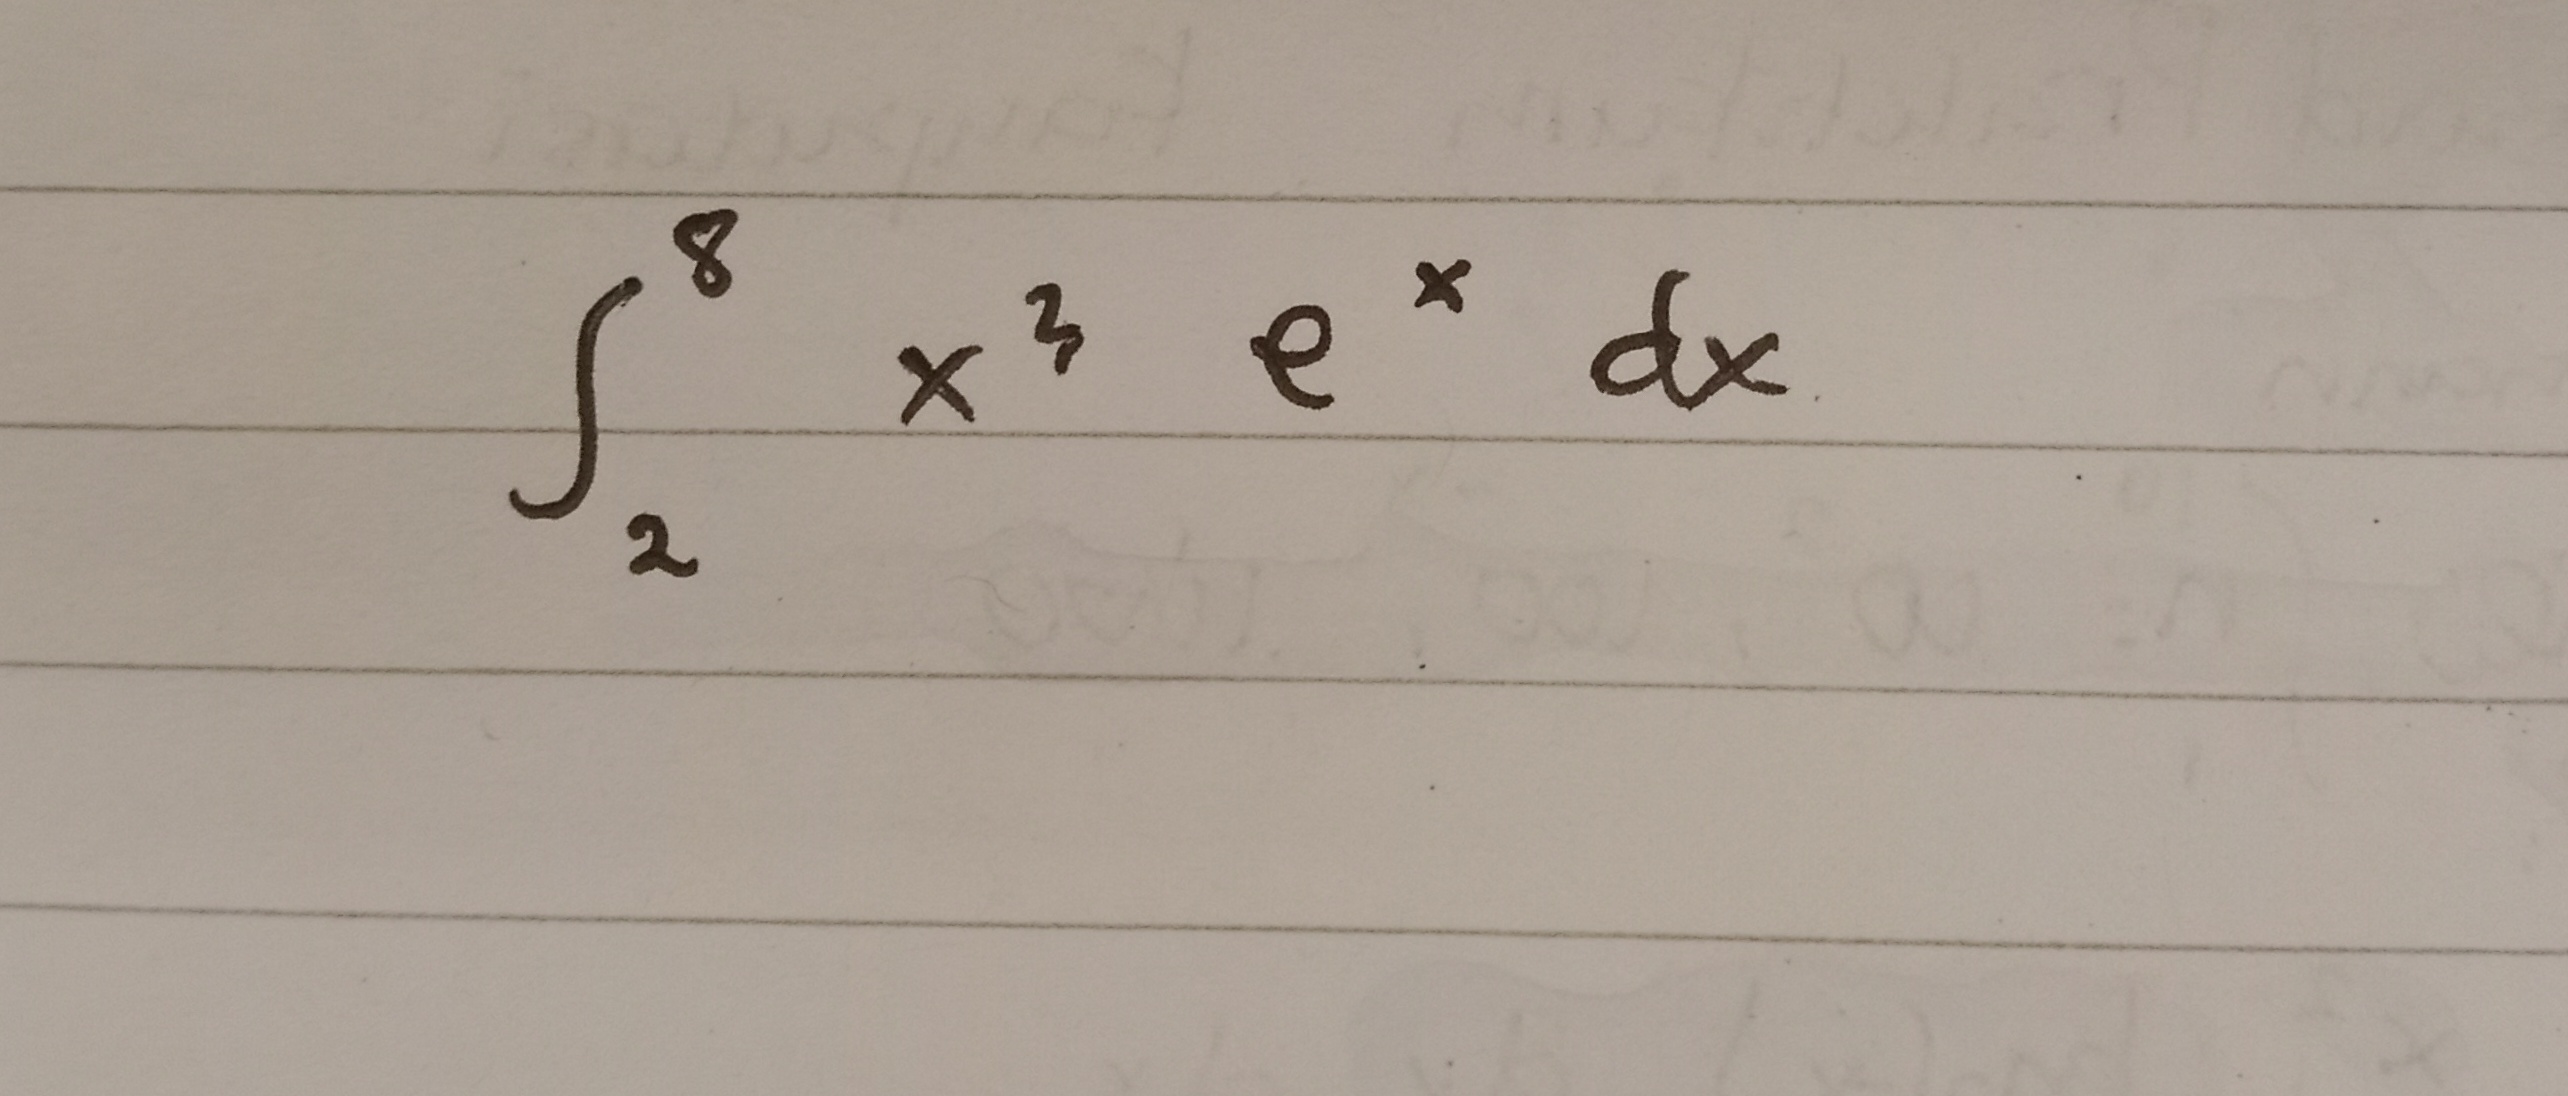 ∫₂⁸ x³ eˣ dx